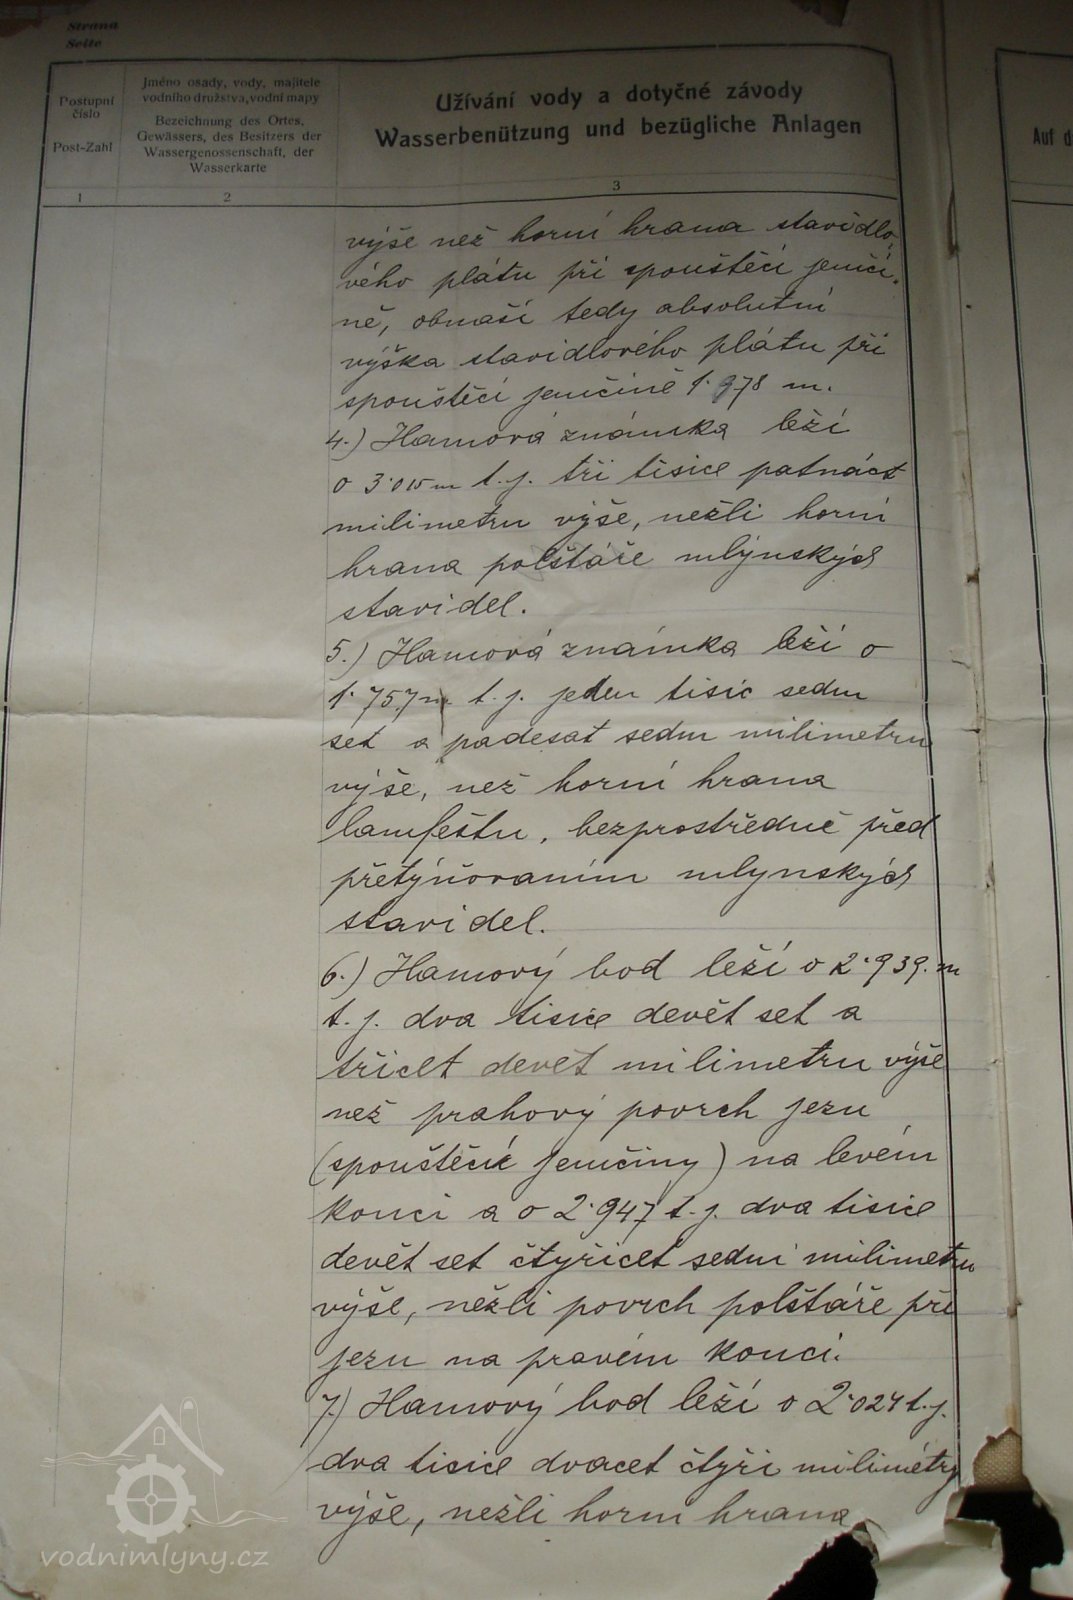 Strana
Seite
Postupní
číslo
Post-Zahl
Jméno osady, vody, majitele
vodního družstva, vodní mapy
Bezeichnung des Ortes,
Gewässers, des Besitzers der
Wassergenossenschaft, der
Wasserkarte
Užívání vody a dotyčné závody
Wasserbenützung und bezügliche Anlagen
Auf d
1
2
3
výše než horní hrana stavidlo-
vého plátu při spouštěcí jemčí-
ně, obnaší tedy absolutní
výška stavidlového plátu při
spouštěcí jemčině 1·978 m.
4.) Hamová známka leží
o 3·015 m t. j. tři tisice patnáct
milimetru výše, nežli horní
hrana polštáře mlýnských
stavidel.
5.) Hamová známka leží o
1·757 m t. j. jeden tisic sedm
set a padesat sedm milimetru
výše, než horní hrana
lamfeštu, bezprostředně před
přetýňovaním mlynských
stavidel.
6.) Hamový bod leží o 2·939. m
t. j. dva tisice devět set a
třicet devět milimetru výše
než prahový povrch jezu
(spouštěcí jemčiny) na levém
konci a o 2·947 t. j. dva tisice
devět set čtyřicet sedm milimetru
výše, nežli povrch polštáře při
jezu na pravém konci.
7.) Hamový bod leží o 2·024 t. j.
dva tisice dvacet čtyři milimétry
výše, nežli horní hrana
vodnimlyny.cz